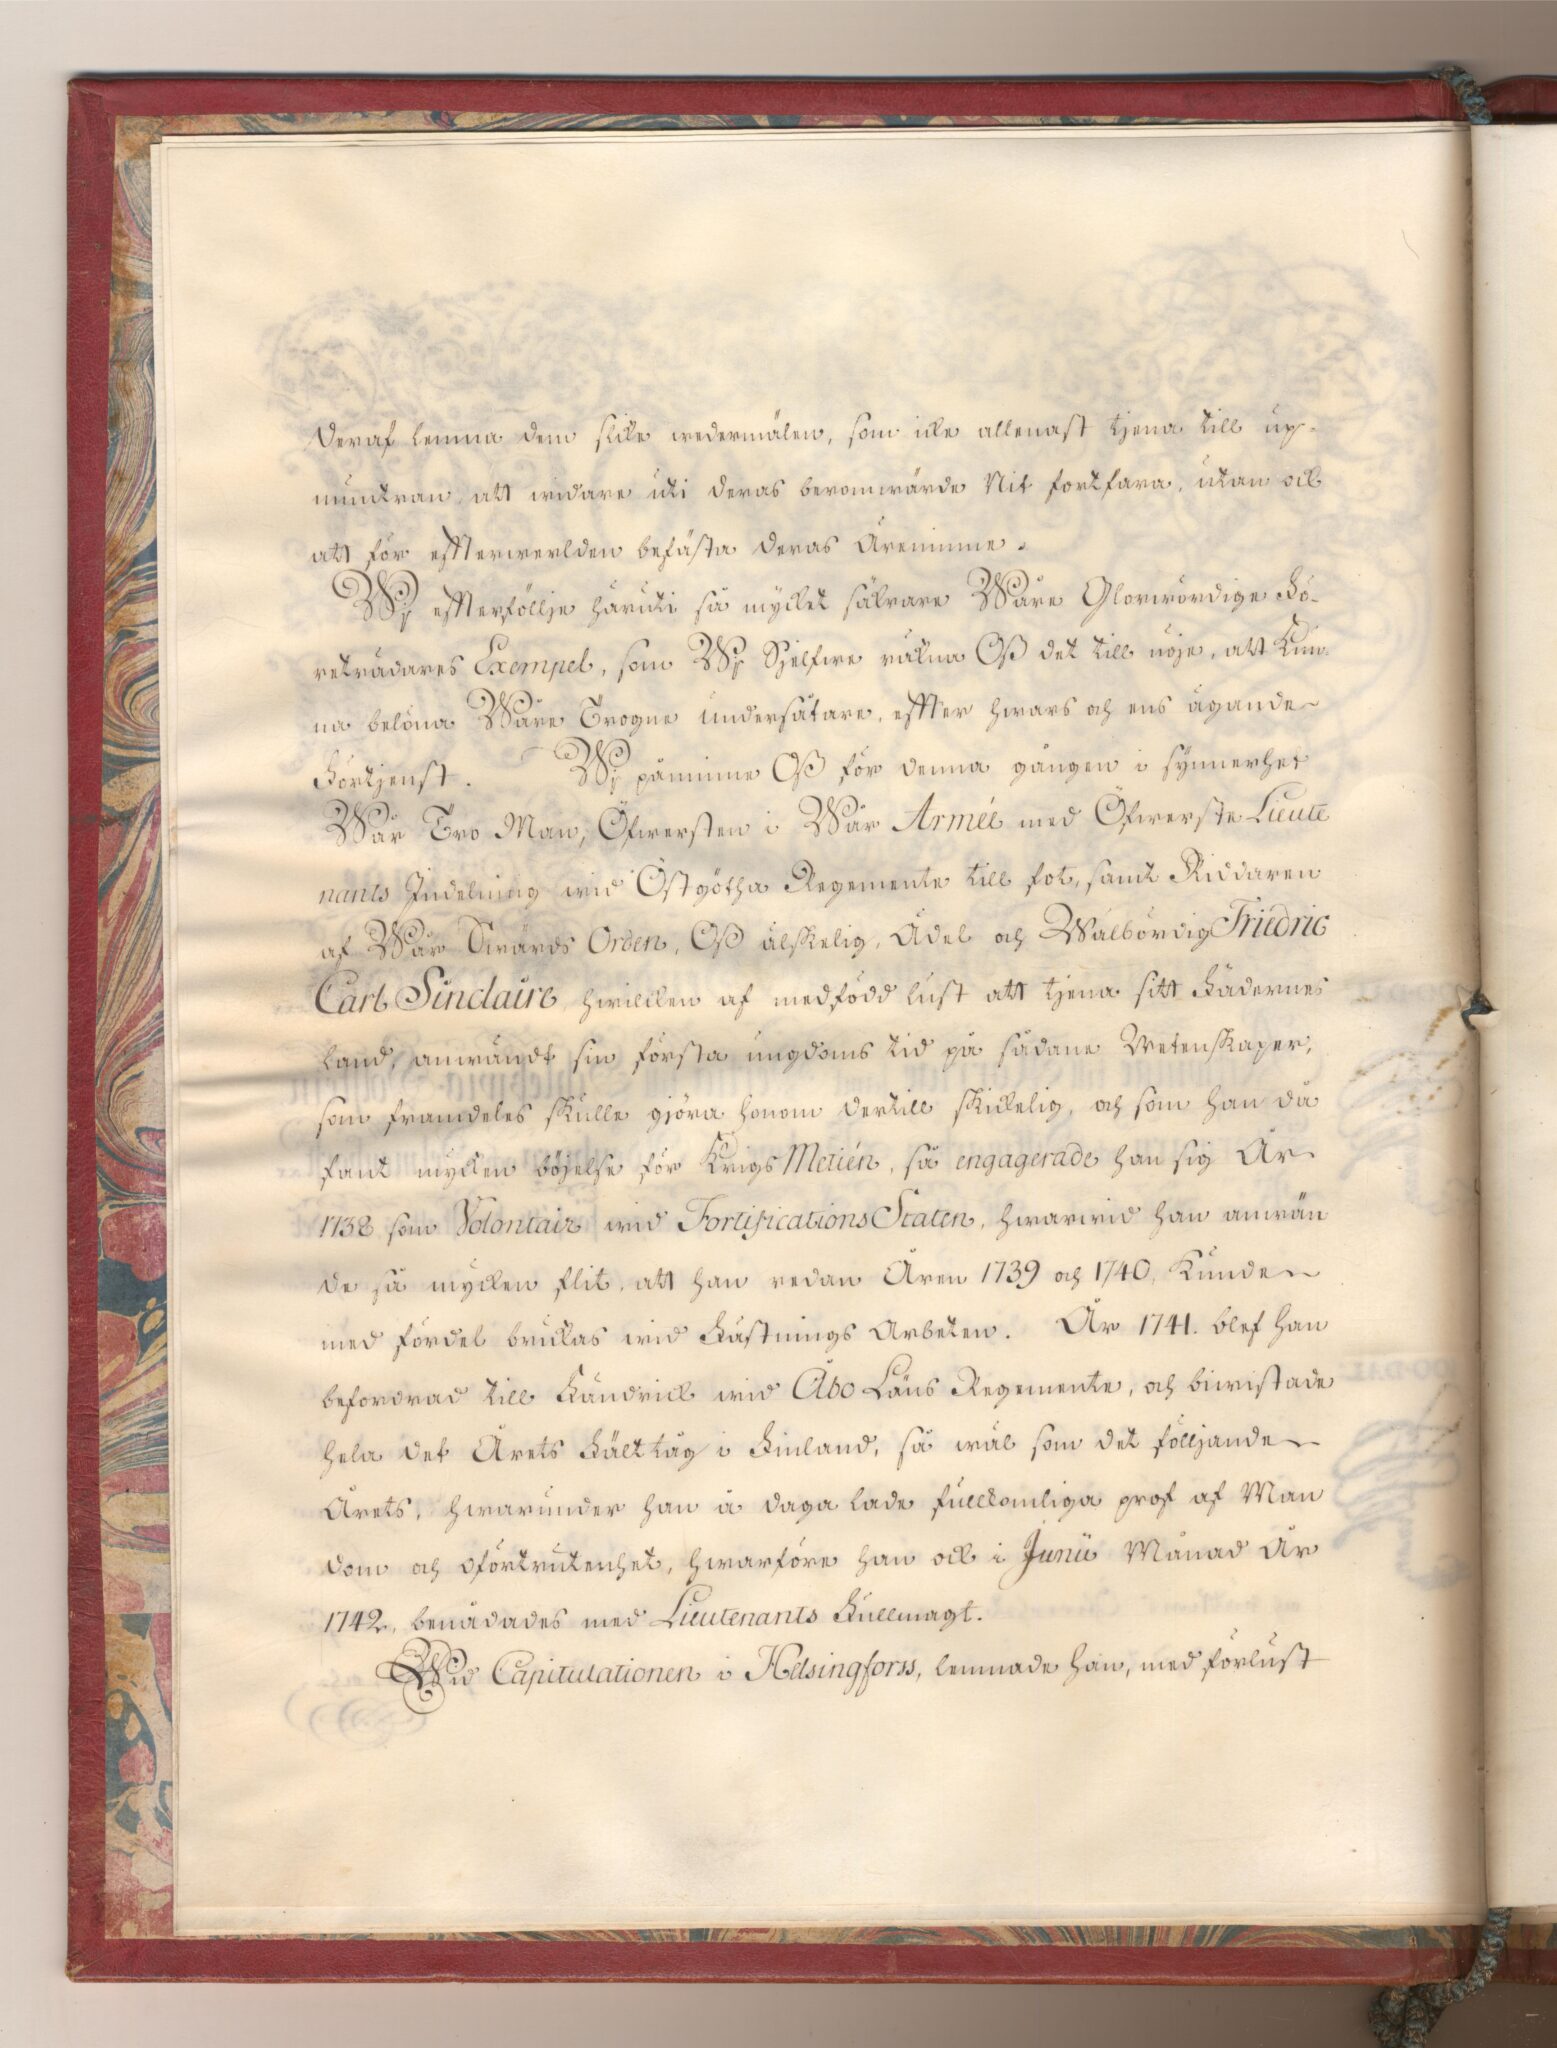 deraf lemna dem slike wedermälen, som icke allenast tjena till up-
muntran, att widare uti deras berömwärde Nit fortfara, utan ock
att för effterwerlden befästa deras Äreminne.
Wj effterföllje häruti så mycket säkrare Wåre Glorwördige Fö-
reträdares Exempel, som Wj Sjelfwe räkna Oß det till nöje, att Kun-
na belöna Wåre Trogne undersåtare, effter hwars och ens ägande
Förtjenst. Wj påminne Oß för denna gången i synnerhet
Wår Tro Man, Öfwersten i Wår Armée med Öfwerste Lieute
nants Indelning wid Östgötha Regemente till fot, samt Riddaren
af Wår Swärds Orden, Oß älskelig, Ädel och Wälbördig Friedric
Carl Sinclaire, hwilcken af medfödd lust att tjena sitt Fädernes
land, anwändt sin första ungdoms tid på sådane Wetenskaper,
som framdeles skulle gjöra honom dertill skickelig, och som han då
fant mycken böjelse för Krigs Metien, så engagerade han sig År
1738 som Volontair wid Fortifications Staten, hwarwid han anwän
de så mycken flit, att han redan Åren 1739 och 1740, Kunde
med fördel bruckas wid Fästnings Arbeten. År 1741. blef han
befordrad till Fändrick wid Åbo Läns Regemente, och biwistade
hela det Årets Fälttåg i Finland, så wäl som det följande
Årets, hwarunder han å daga lade fullkomliga prof af Man
dom och oförtrutenhet, hwarföre han ock i Junii Månad År
1742, benådades med Lieutenants Fullmagt.
Wid Capitulationen i Helsingforss, lemnade han, med förlust